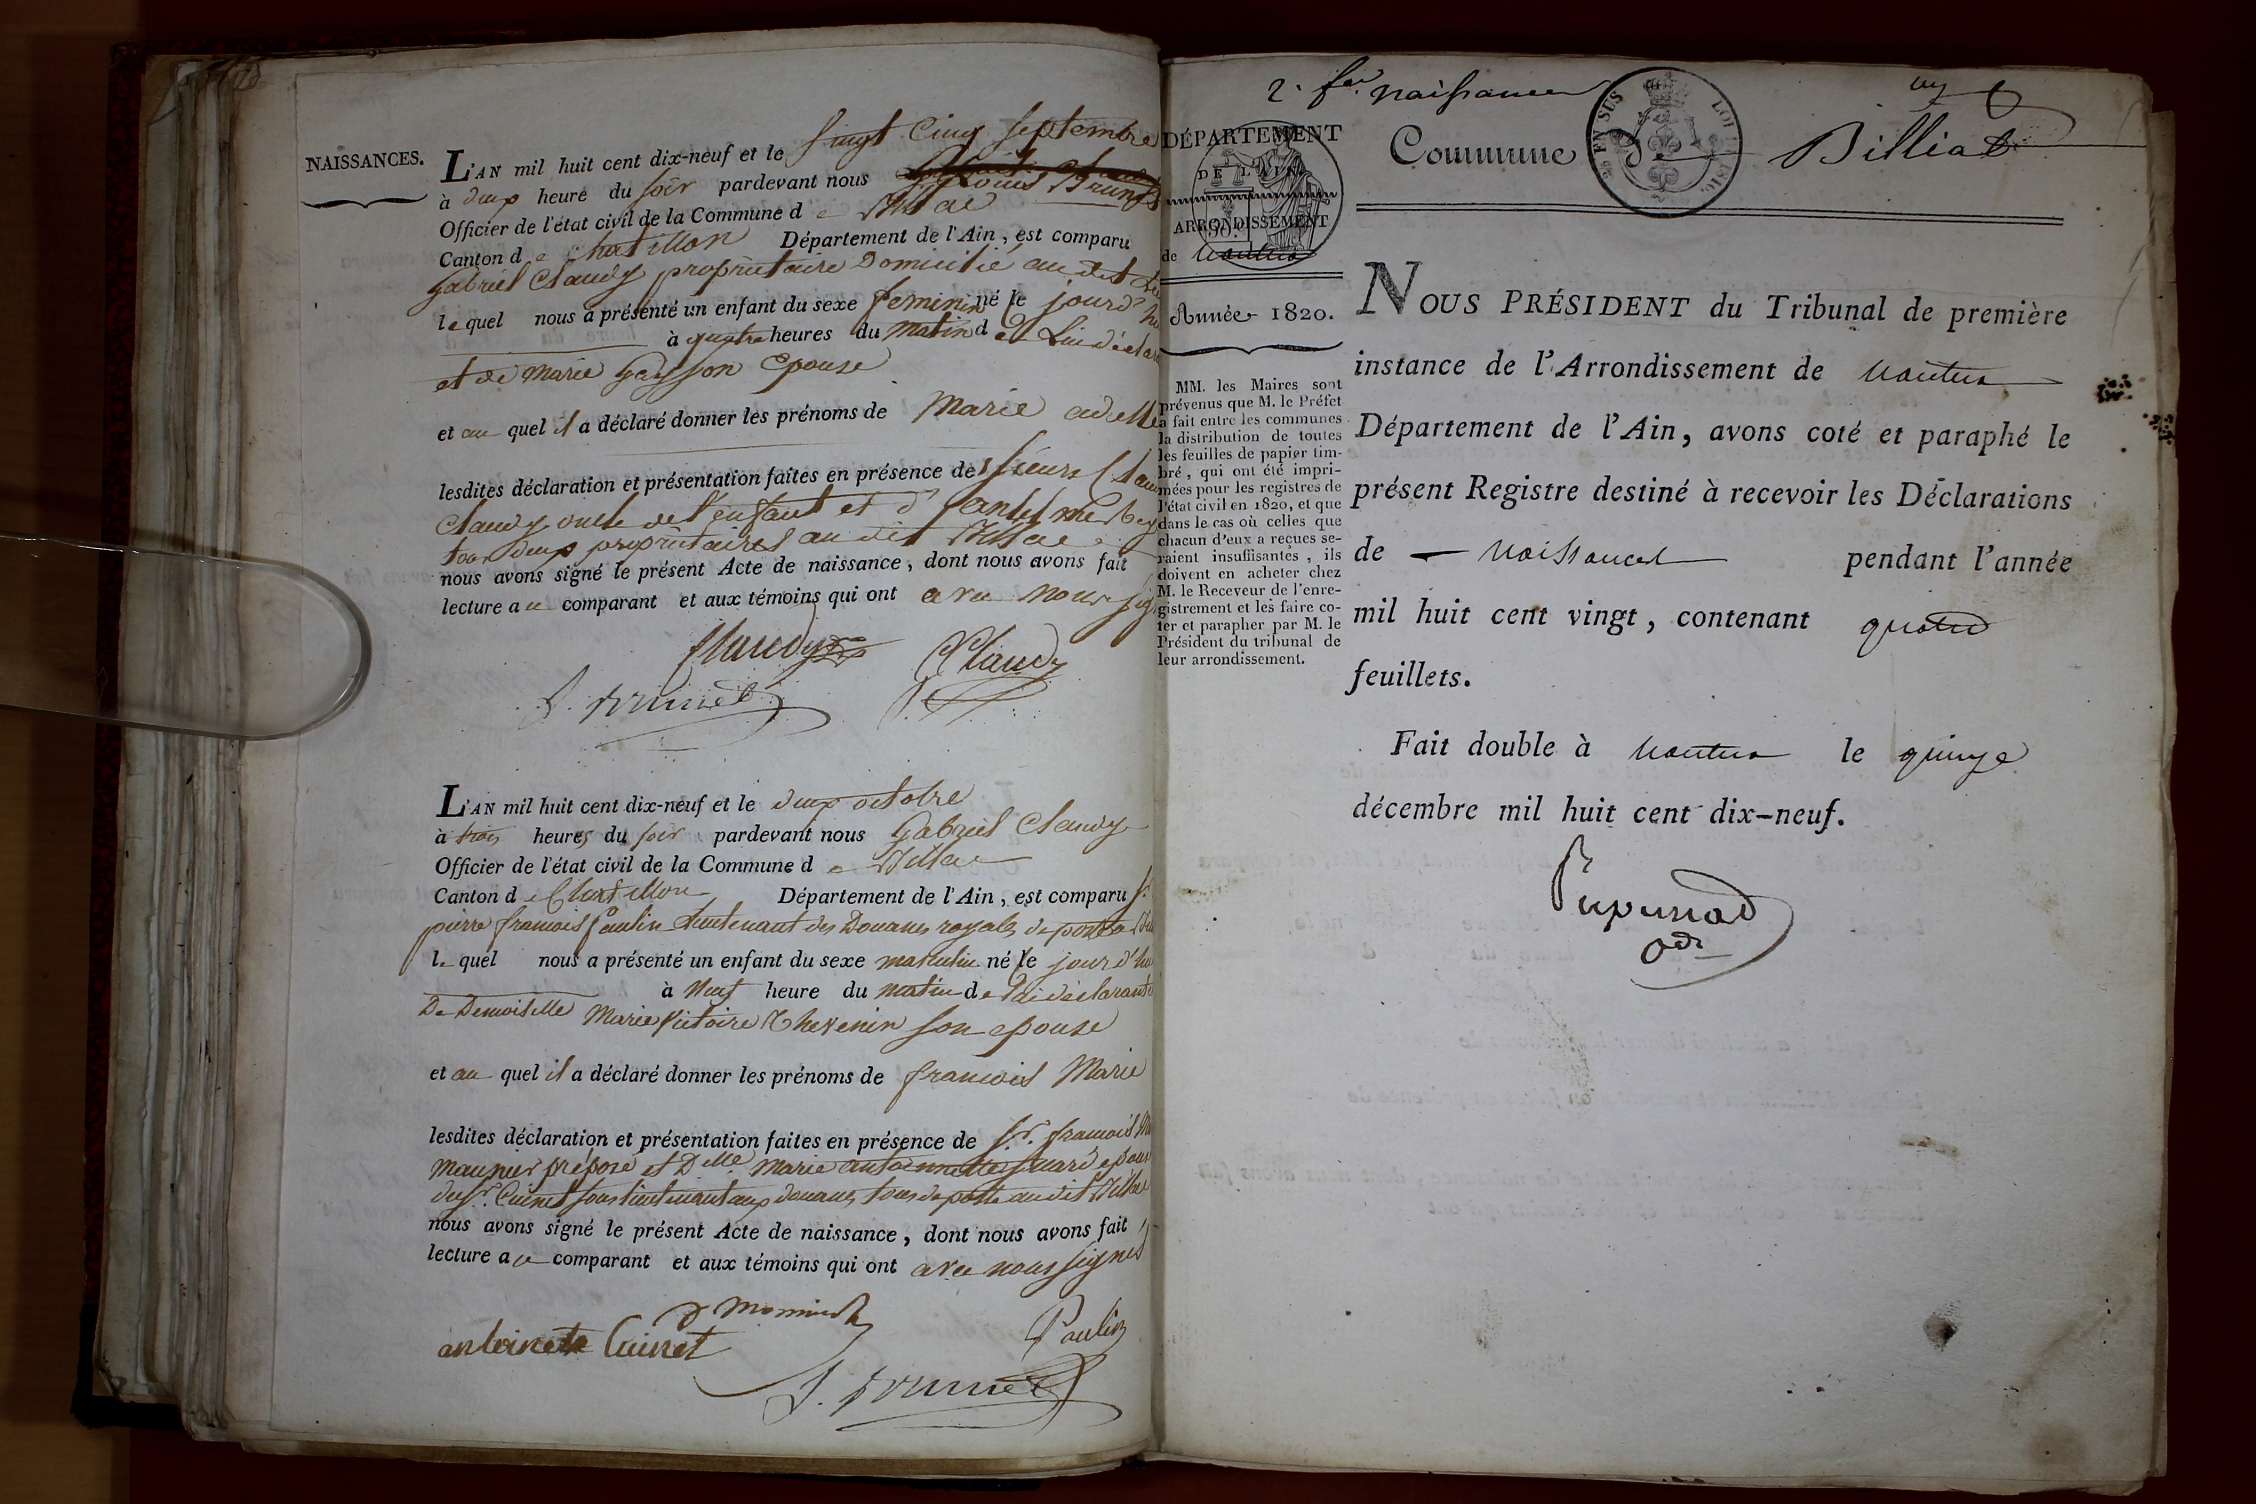 NAISSANCES.
L'AN mil huit cent dix-neuf et le vingt cinq septembre
à deux heure du soir pardevant nous Louis Brunet
Officier de l'état civil de la Commune d e
Canton d e chatillon Département de l'Ain, est comparu
Gabriel Claudy propriétaire Domicilié au dit
le quel nous a présenté un enfant du sexe feminin né le jourd'hu
à quatre heures du matin d e Lui déclara
et de marie Gaysson Epouse
et au quel il a déclaré donner les prénoms de Marie adelle
lesdites déclaration et présentation faites en présence de sieurs Clau
Claudy oncle de l'enfant et d' antelme Rey
tous deux propriétaires au dit
nous avons signé le présent Acte de naissance, dont nous avons fait
lecture a u comparant et aux témoins qui ont avec nous sig
Claudy Claudy
L. Brunet
L'AN mil huit cent dix-neuf et le deux octobre
à trois heures du soir pardevant nous Gabriel Claudy
Officier de l'état civil de la Commune d e
Canton d e Chatillon Département de l'Ain, est comparu Sr.
pierre francois paulin Lieutenant des Douanes royales de poste a
le quel nous a présenté un enfant du sexe masculin né le jour d'hu
à Neuf heure du matin d e Lui déclarant
De Demoiselle Marie Victoire Thevenin son epouse
et au quel il a déclaré donner les prénoms de francois Marie
lesdites déclaration et présentation faites en présence de Sr. francois
préposé et Dlle. marie antoinette epouse
du Sr. Cuinet sous lieutenant aux douanes, tous de poste au dit
nous avons signé le présent Acte de naissance, dont nous avons fait
lecture a u comparant et aux témoins qui ont avec nous signés
antoinette Cuinet Paulin
L. Brunet
2. fet. naissances
DÉPARTEMENT
DE L'AIN.
ARRONDISSEMENT
de Nantua
Année 1820.
MM. les Maires sont
prévenus que M. le Préfet
a fait entre les communes
la distribution de toutes
les feuilles de papier tim-
bré, qui ont été impri-
mées pour les registres de
l'état civil en 1820, et que
dans le cas où celles que
chacun d'eux a reçues se-
raient insuffisantes, ils
doivent en acheter chez
M. le Receveur de l'enre-
gistrement et les faire co-
ter et parapher par M. le
Président du tribunal de
leur arrondissement.
Commune de Billiat
NOUS PRÉSIDENT du Tribunal de première
instance de l'Arrondissement de Nantua
Département de l'Ain, avons coté et paraphé le
présent Registre destiné à recevoir les Déclarations
de Naissances pendant l'année
mil huit cent vingt, contenant quatre
feuillets.
Fait double à Nantua le quinze
décembre mil huit cent dix-neuf.